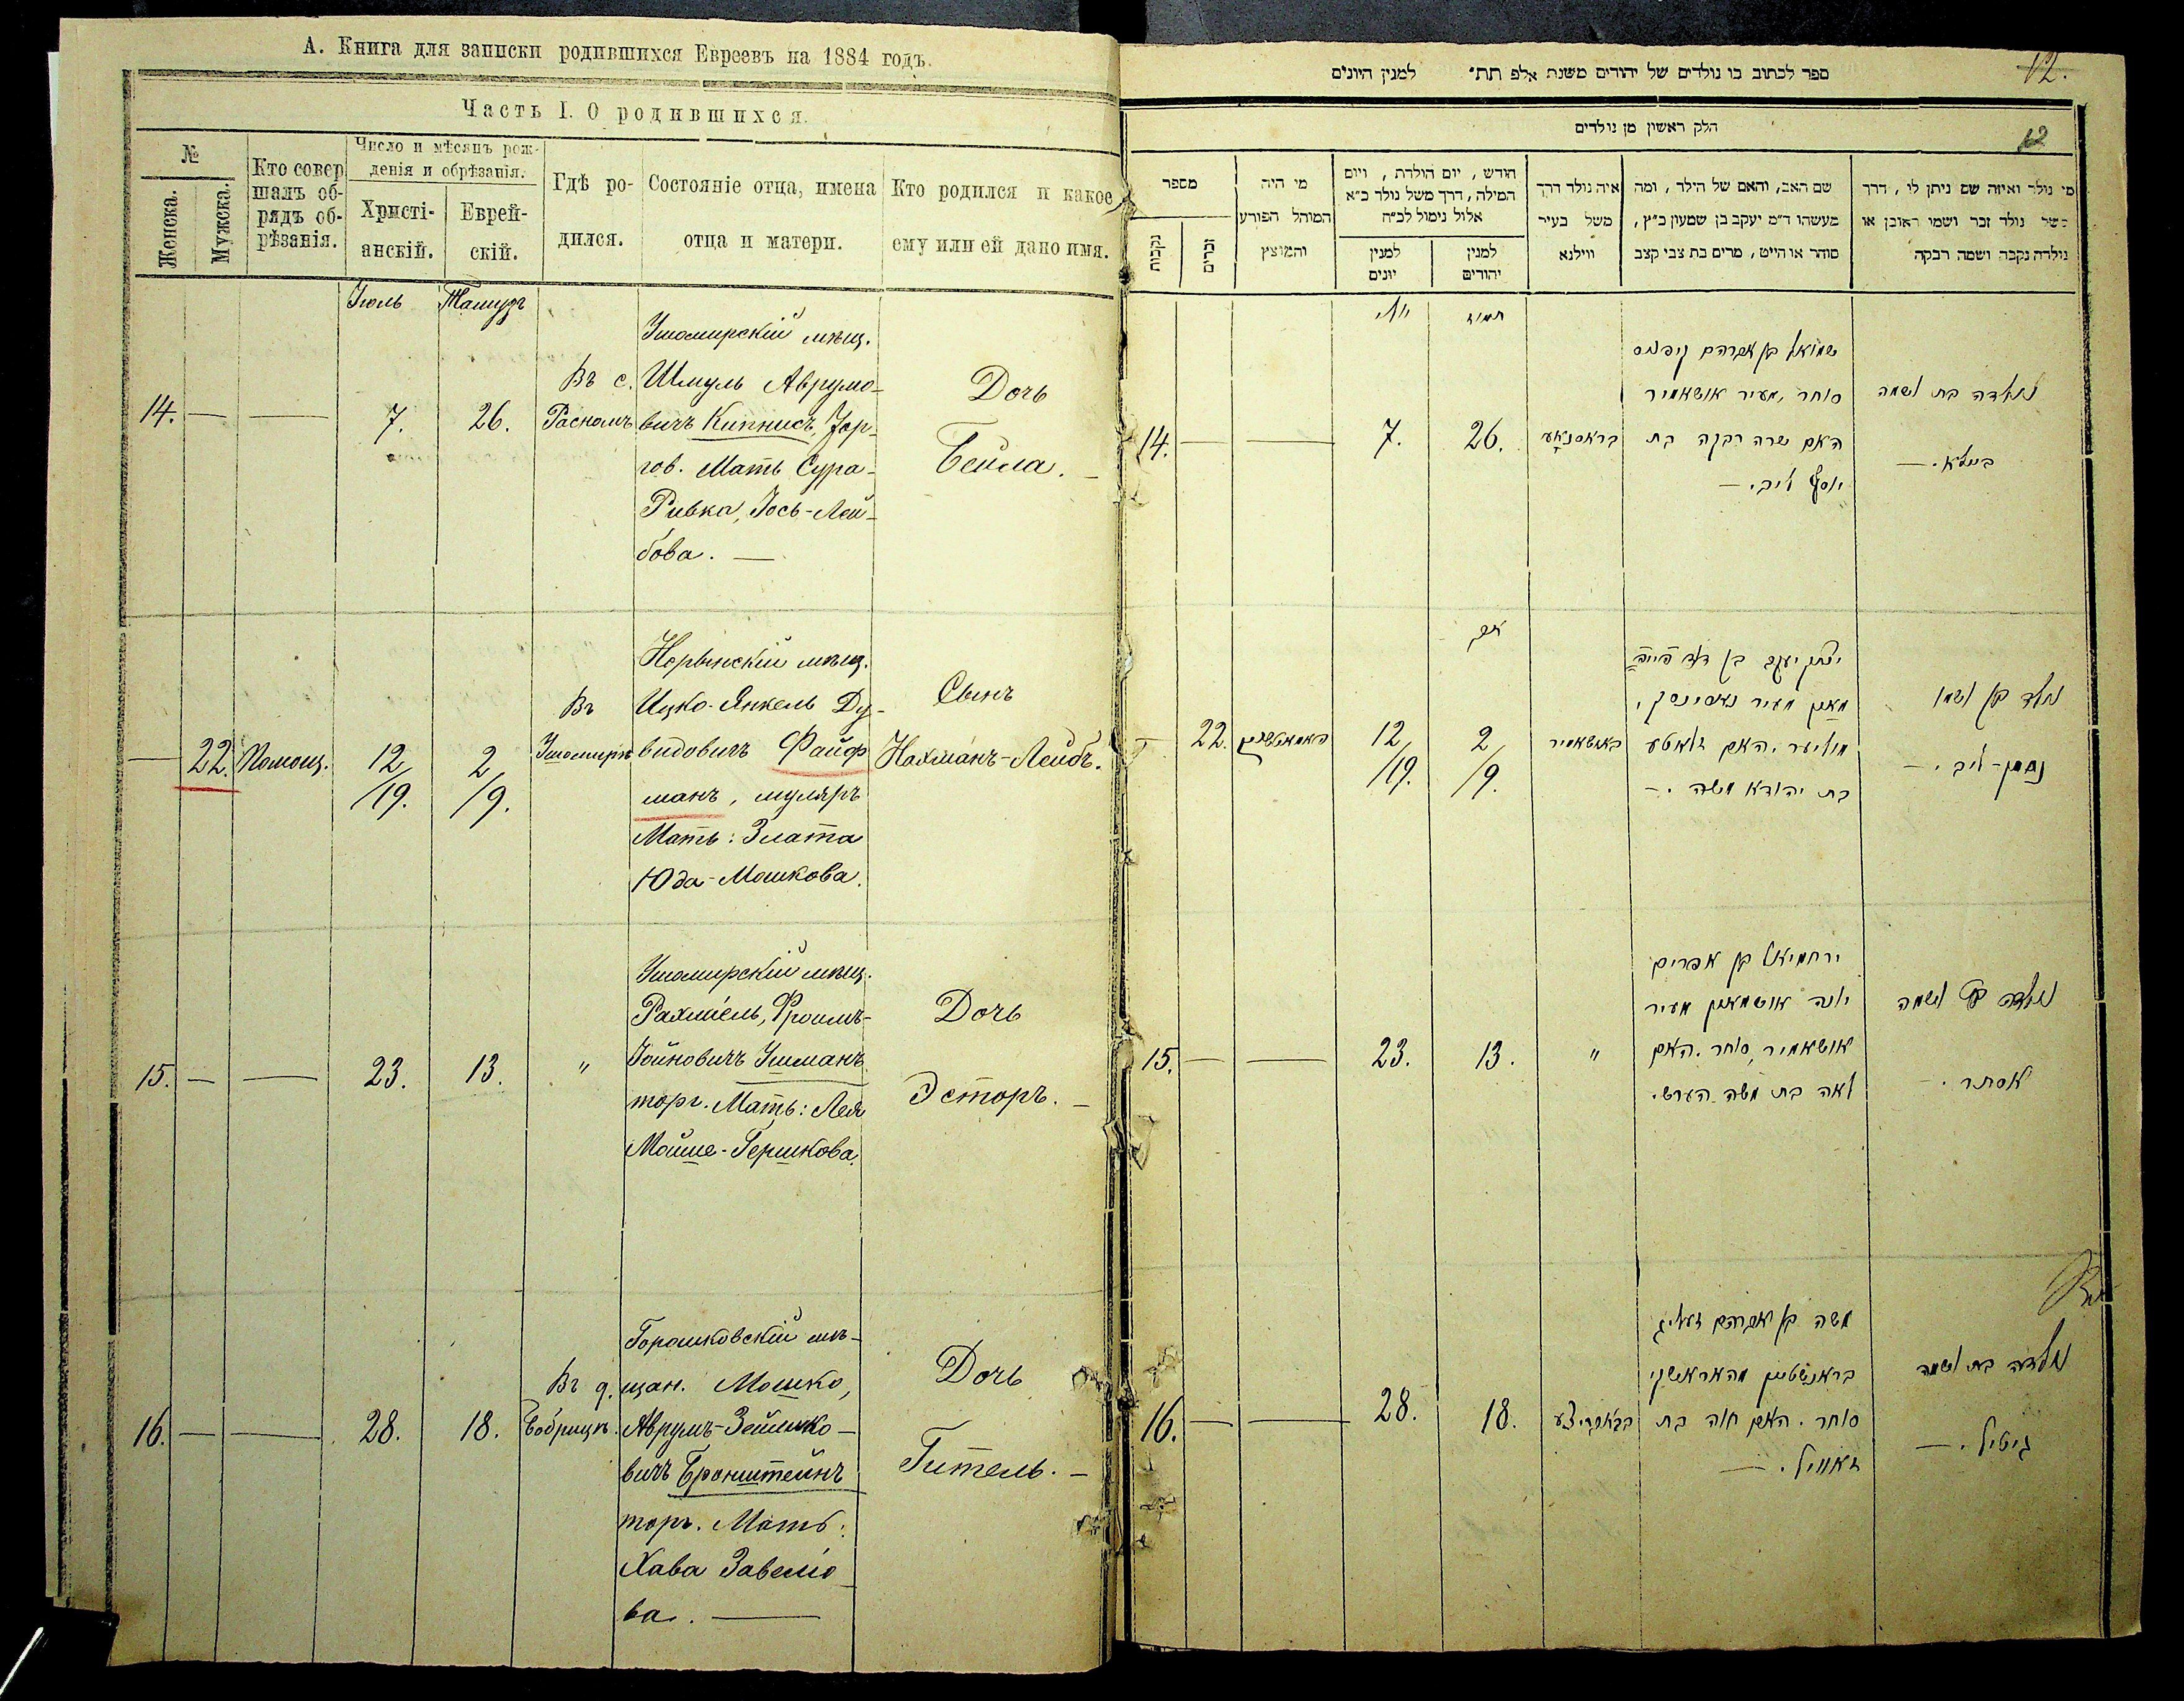 А. Книга для записки родившихся Евреевъ на 1884 годъ.
Часть I. О родившихся.
№
Женска.
Мужска.
Кто совер
шалъ об-
рядъ об-
рѣзанія.
Число и мѣсяцъ рож-
денія и обрѣзанія.
Христі-
анскій.
Еврей-
скій.
Гдѣ ро-
дился.
Состояніе отца, имена
отца и матери.
Кто родился и какое
ему или ей дано имя.
Іюль
Тамузъ
14.
—
—
7.
26.
Въ с.
Расномъ
Ушомирскій мѣщ.
Шмуль Аврумо-
вичъ Кипнисъ,
гов. Мать Сура-
Ривка, Іось-Лей-
бова. —
Дочь
Бейла. —
—
22.
Помощ.
12/
/19.
2/
/9.
Въ
Ушомирѣ
Норынскій мѣщ.
Ицко-Янкель Ду-
видовичъ Файф
манъ, муляръ
Мать: Злата
Юда-Мошкова.
Сынъ
Нахманъ-Лейбъ.
15.
—
—
23.
13.
"
Ушомирскій мѣщ.
Рахміель, Фроимъ-
Іойновичъ Ушманъ
торг. Мать: Лея
Мойше-Гершкова.
Дочь
Эстеръ. —
16.
—
—
28.
18.
Въ д.
Бобрицѣ.
Горошковскій мѣ-
щан. Мошко,
Аврумъ-Зейлико-
вичъ Бронштейнъ
торг. Мать:
Хава Завеліо-
ва. —
Дочь
Гитель. —
12.
12
ספר לכתוב בו נולדים של יהודים משנת אלפ תת״ למנין היונים
חלק ראשון מן נולדים
מספר
נקבות
זכרים
מי היה
המוהל הפורע
והמוצץ
חודש, יום הולדת, ויום
המילה, דרך משל נולד כ״א
אלול נימול לכ״ח
למנין
יונים
למנין
יהודים
איה נולד דרך
משל בעיר
ווילנא
שם האב, והאם של הילד, ומה
מעשהו ד״מ יעקב בן שמעון כ״ץ,
סוחר או חייט, מרים בת צבי קצב
מי נולד ואיזה שם ניתן לו, דרך
משל נולד זכר ושמו ראובן או
נולדה נקבה ושמה רבקה
יולי
תמוז
14.
—
—
7.
26.
שמואל בן אברהם קיפניס
סוחר, מעיר אושאמיר
האם שרה רבקה בת
יוסף ליב. —
נולדה בת ושמה
ביילא. —
אב
—
22.
12/
/19.
2/
/9.
באושאמיר
יצחק יעקב בן דוד פייפ
מוליער. האם זלאטע
בת יהודא משה. —
נולד בן ושמו
נחמן-ליב. —
15.
—
—
23.
13.
"
ירחמיאל בן אפרים
יונה אושמאן מעיר
אושאמיר, סוחר. האם
לאה בת משה הערש.
נולדה בת ושמה
אסתר. —
16.
—
—
28.
18.
משה בן אברהם זעליג
בראנשטיין
סוחר. האם חוה בת
זאוויל. —
נולדה בת ושמה
גיטיל. —